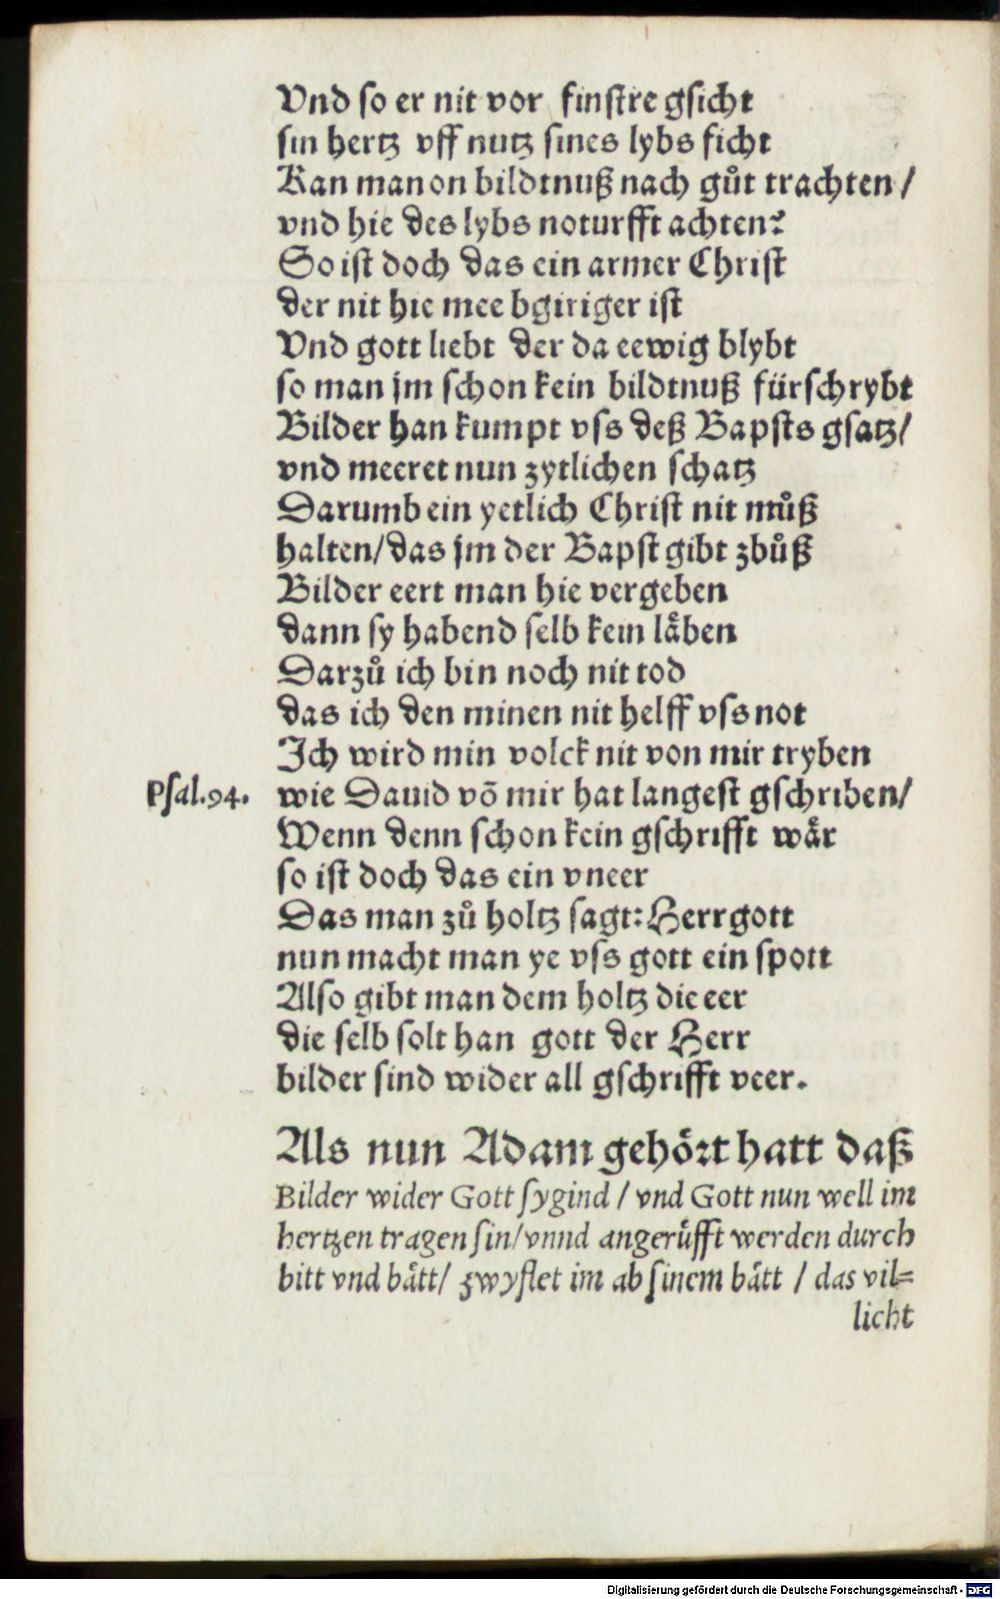 Vnd so er nit vor finstre gsicht
sin hertz vff nutz sines lybs ficht
Kan man on bildtnuß nach gůt trachten /
vnd hie des lybs noturfft achten?
So ist doch das ein armer Christ
der nit hie mee bgiriger ist
Vnd gott liebt der da eewig blybt
so man jm schon kein bildtnuß fürschrybt
Bilder han kumpt vss deß Bapsts gsatz/
vnd meeret nun zytlichen schatz
Darumb ein yetlich Christ nit můß
halten/das jm der Bapst gibt zbůß
Bilder eert man hie vergeben
dann sy habend selb kein låben
Darzů ich bin noch nit tod
das ich den minen nit helff vss not
Ich wird min volck nit von mir tryben
Psal.94. wie Dauid võ mir hat langest gschriben/
Wenn denn schon kein gschrifft wår
so ist doch das ein vneer
Das man zů holtz sagt: Herrgott
nun macht man ye vss gott ein spott
Also gibt man dem holtz die eer
die selb solt han gott der Herr
bilder sind wider all gschrifft veer.
Als nun Adam gehört hatt daß
Bilder wider Gott sygind / vnd Gott nun well im
hertzen tragen sin/vnnd angerůfft werden durch
bitt vnd bått/ zwyflet im ab sinem bått / das vil=
licht
Digitalisierung gefördert durch die Deutsche Forschungsgemeinschaft - DFG